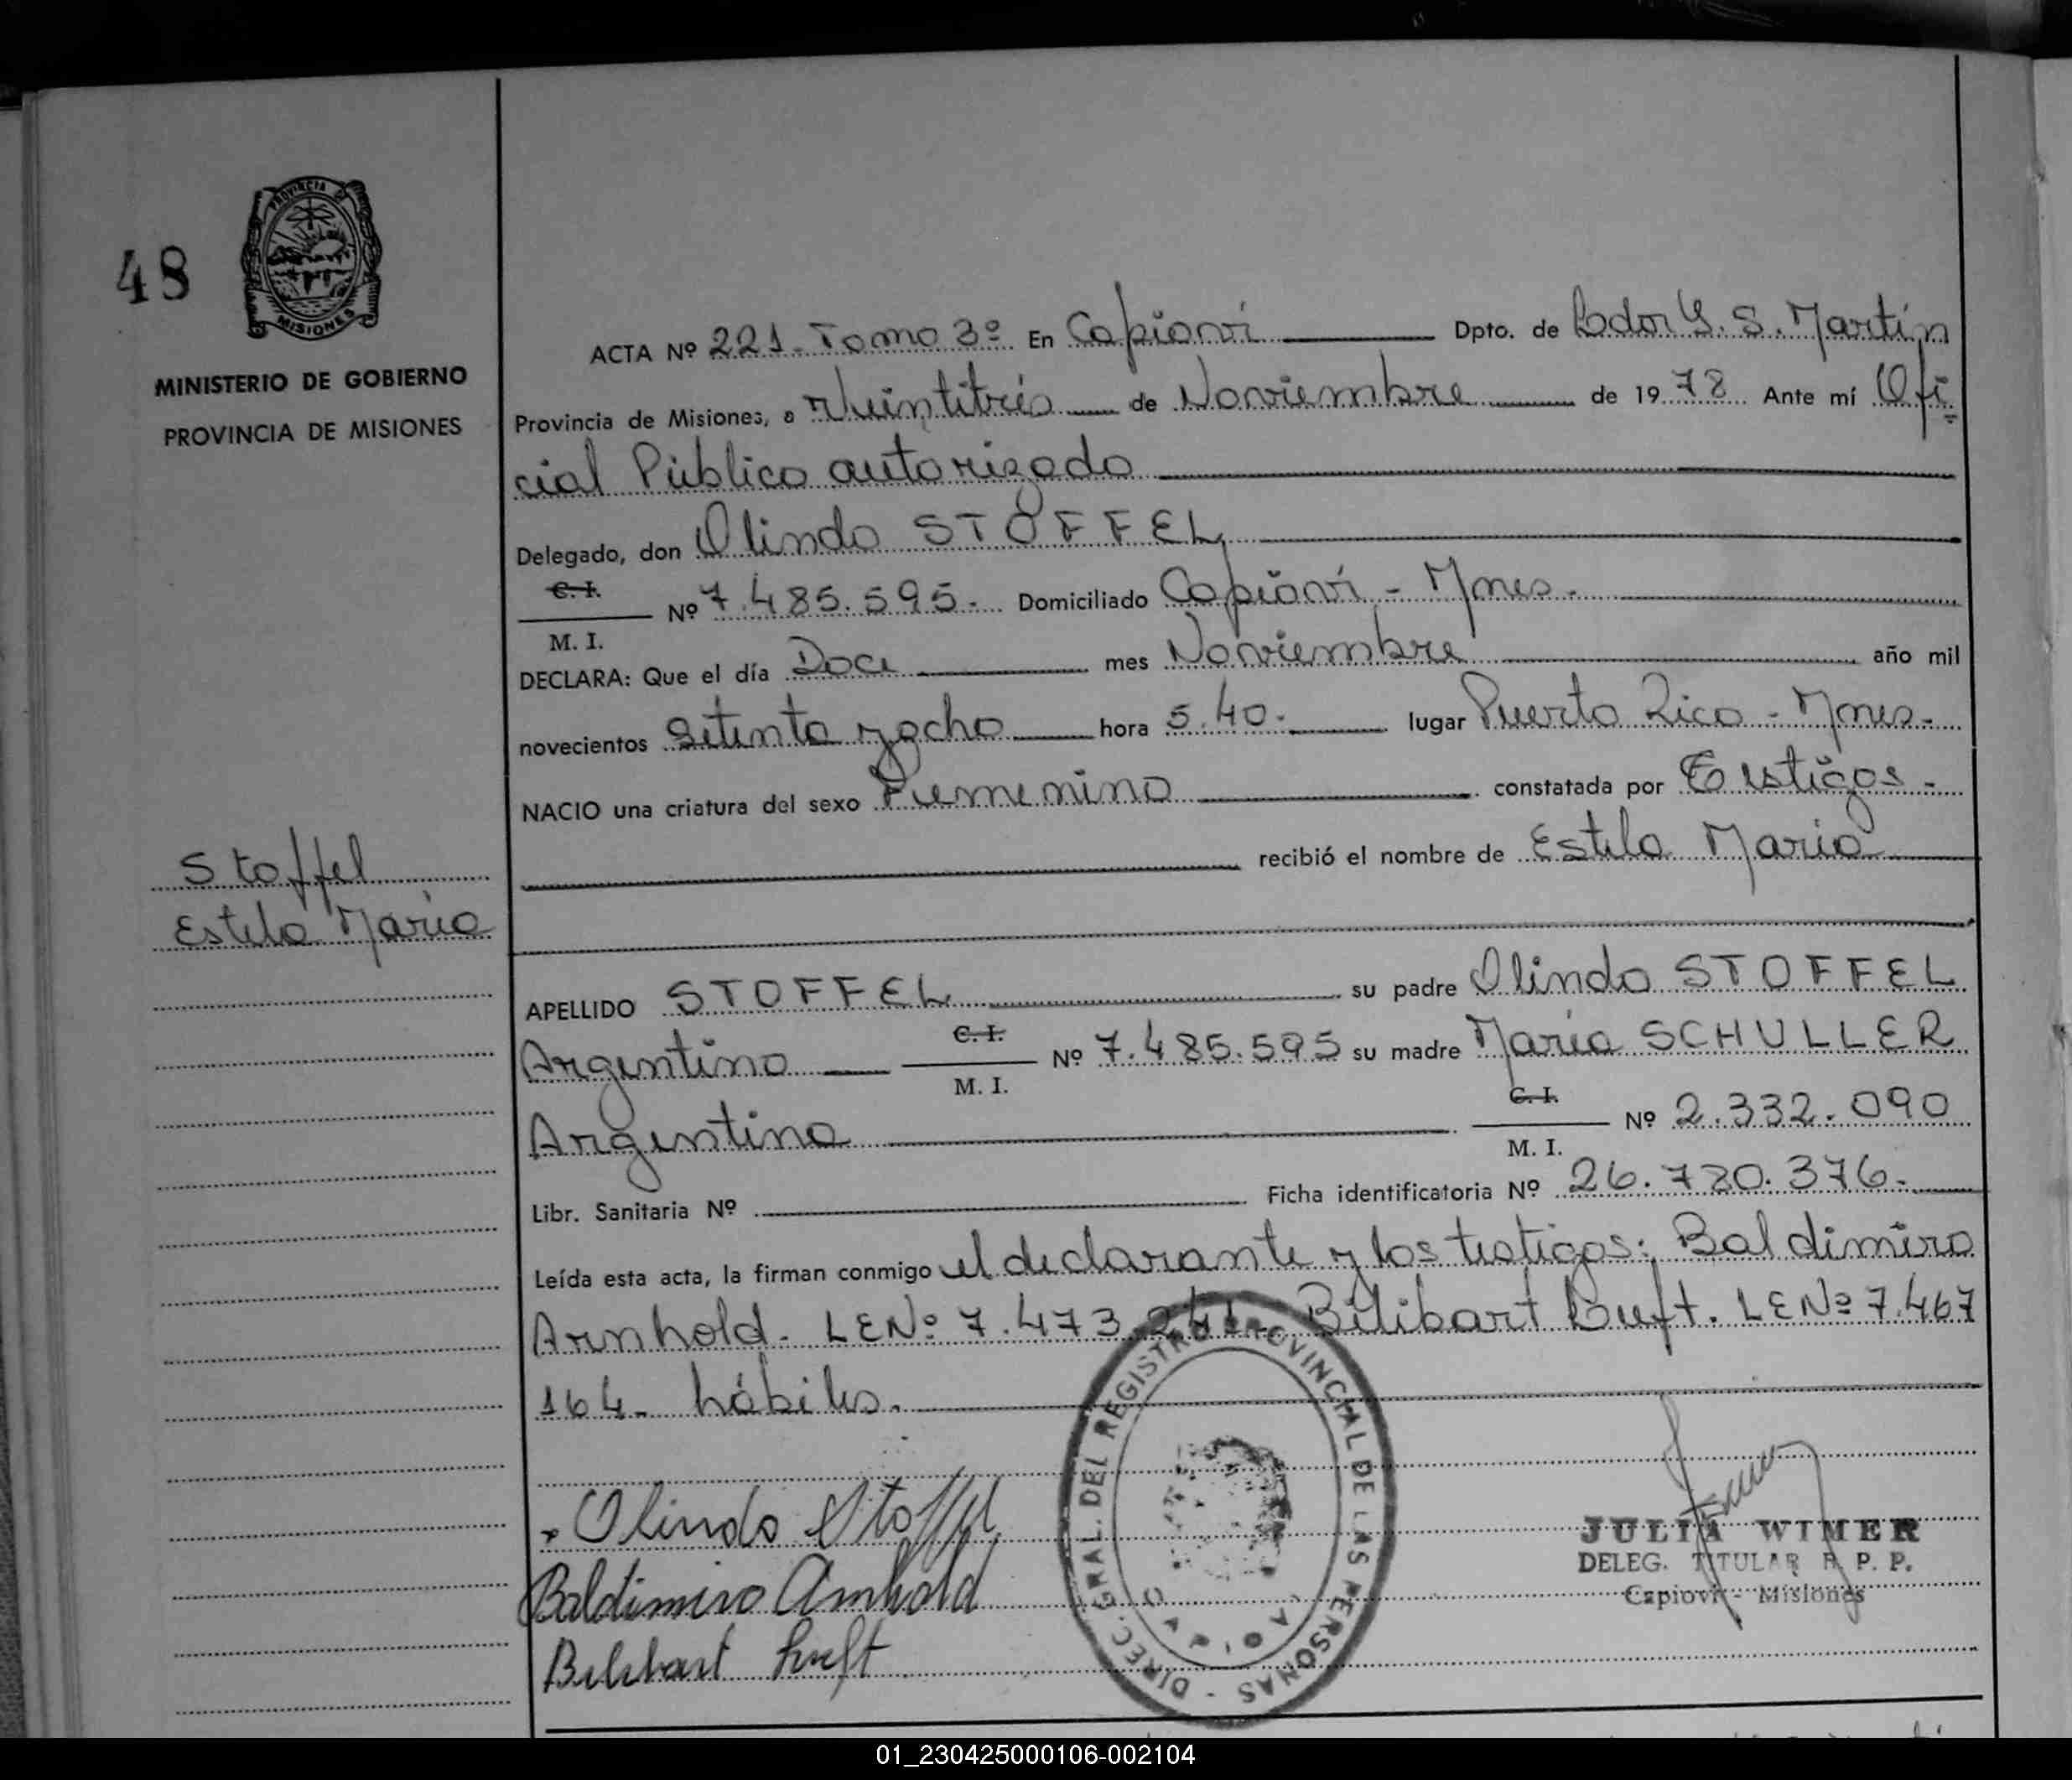 48
PROVINCIA DE
MISIONES
MINISTERIO DE GOBIERNO
PROVINCIA DE MISIONES
Stoffel
Estela María
ACTA Nº 221. Tomo 3º En Capioví Dpto. de Ldor G. S. Martín
Provincia de Misiones, a Veintitrés de Noviembre de 1978 Ante mí Ofi
cial Público autorizado
Delegado, don Olindo STOFFEL,
C. I.
M. I. Nº 7.485.595. Domiciliado Capioví - Mnes.
DECLARA: Que el día Doce mes Noviembre año mil
novecientos Setenta y ocho hora 5.40. lugar Puerto Rico - Mnes.
NACIO una criatura del sexo Femenino constatada por Testigos.
recibió el nombre de Estela María
APELLIDO STOFFEL su padre Olindo STOFFEL
Argentino C. I. M. I. Nº 7.485.595 su madre María SCHULLER
Argentina C. I. M. I. Nº 2.332.090
Libr. Sanitaria Nº Ficha identificatoria Nº 26.780.376.
Leída esta acta, la firman conmigo el declarante y los testigos: Baldimiro
Arnhold. LENº 7.473. Bilibart Luft. LENº 7.467
164. hábiles.
Olindo Stoffel
Baldimiro Arnhold
Bilibart Luft
DIREC. GRAL. DEL REGISTRO PROVINCIAL DE LAS PERSONAS
CAPIOVI
JULIA WIMER
DELEG. TITULAR R. P. P.
Capioví - Misiones
01_230425000106-002104